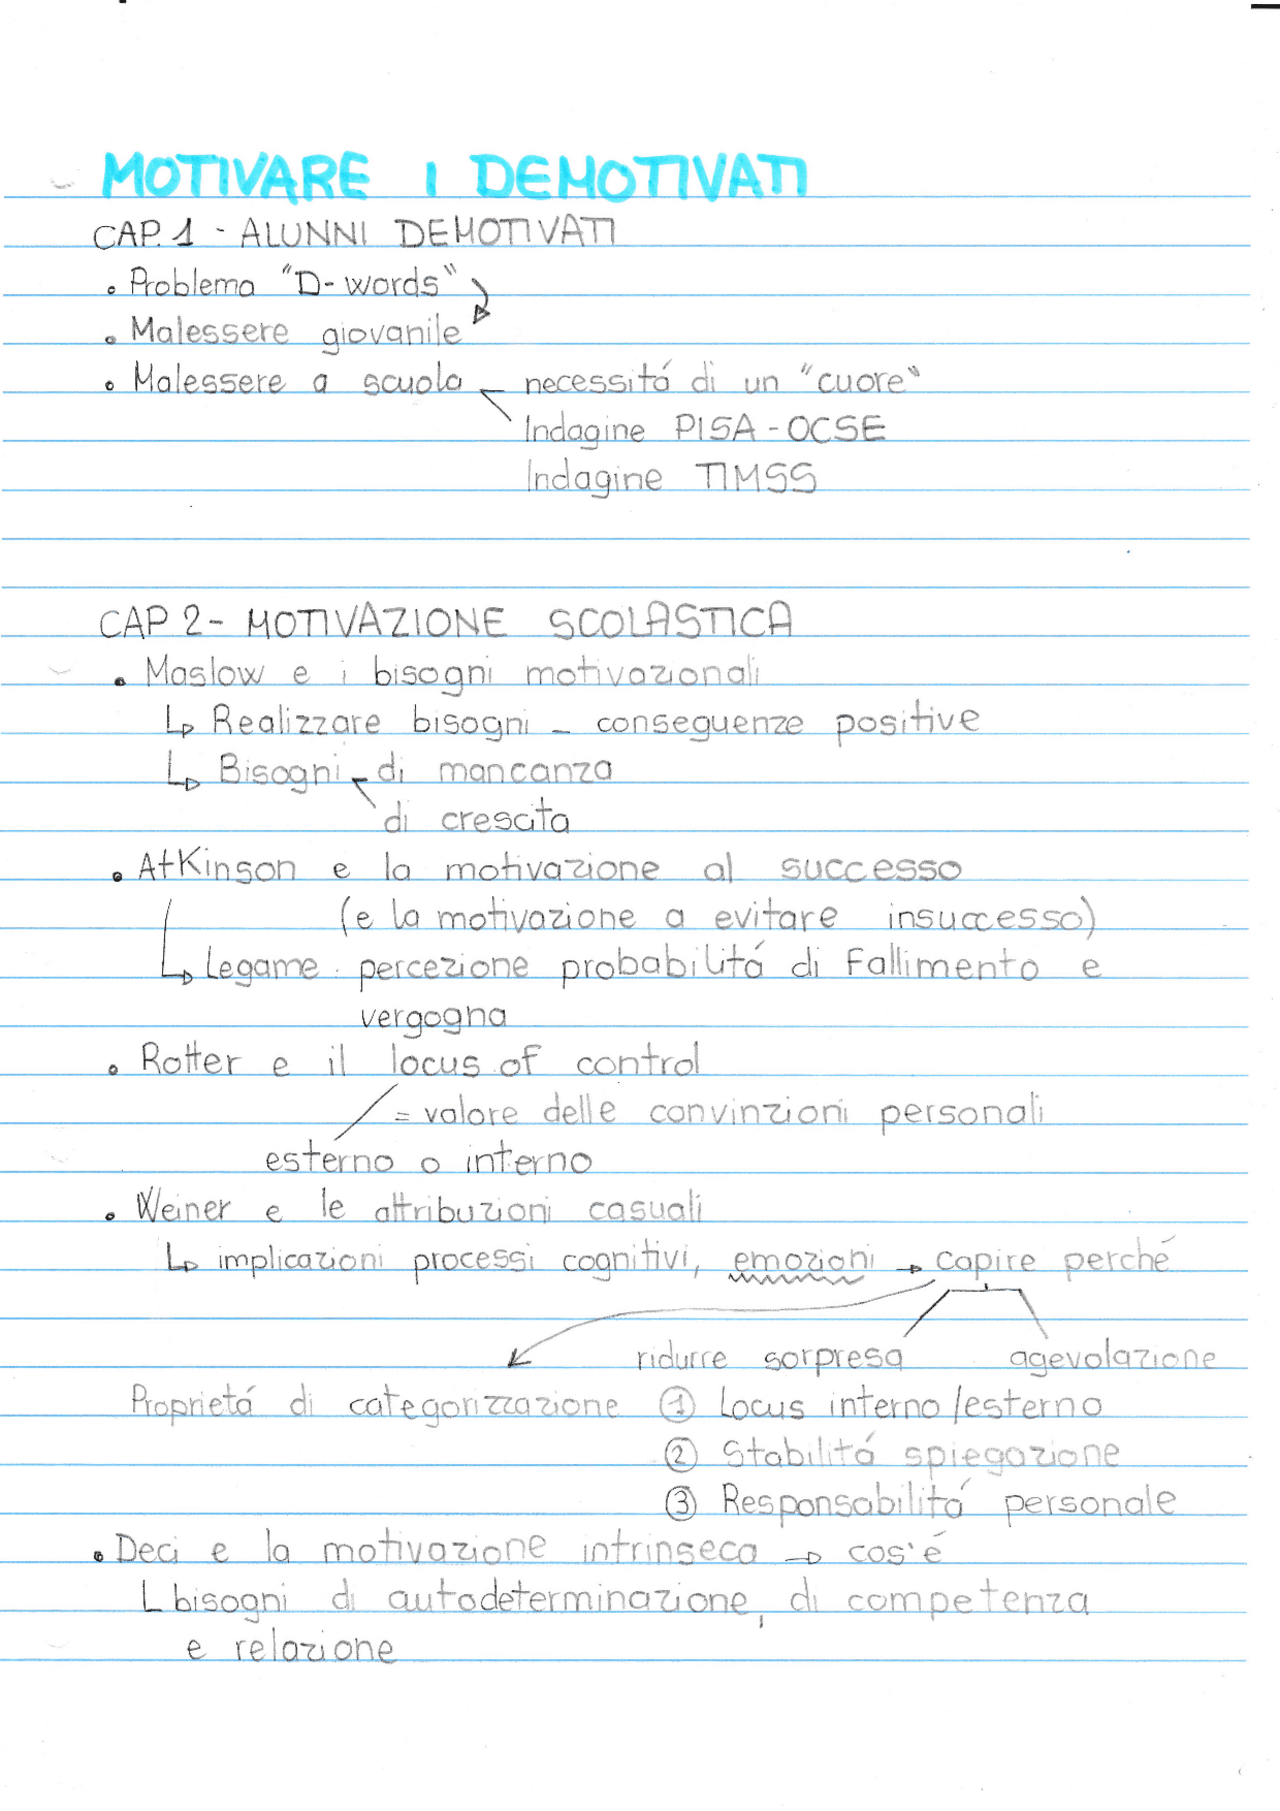 MOTIVARE I DEMOTIVATI
CAP. 1 - ALUNNI DEMOTIVATI
• Problema "D-words"
• Malessere giovanile
• Malessere a scuola - necessitá di un "cuore"
Indagine PISA - OCSE
Indagine TIMSS
CAP 2 - MOTIVAZIONE SCOLASTICA
• Maslow e i bisogni motivazionali
↳ Realizzare bisogni - conseguenze positive
↳ Bisogni - di mancanza
di crescita
• Atkinson e la motivazione al successo
(e la motivazione a evitare insuccesso)
↳ Legame : percezione probabilitá di fallimento e
vergogna
• Rotter e il locus of control
= valore delle convinzioni personali
esterno o interno
• Weiner e le attribuzioni casuali
↳ implicazioni processi cognitivi, emozioni → capire perché
ridurre sorpresa agevolazione
Proprietá di categorizzazione ① Locus interno/esterno
② Stabilitá spiegazione
③ Responsabilitá personale
• Deci e la motivazione intrinseca → cos'é
L bisogni di autodeterminazione, di competenza
e relazione